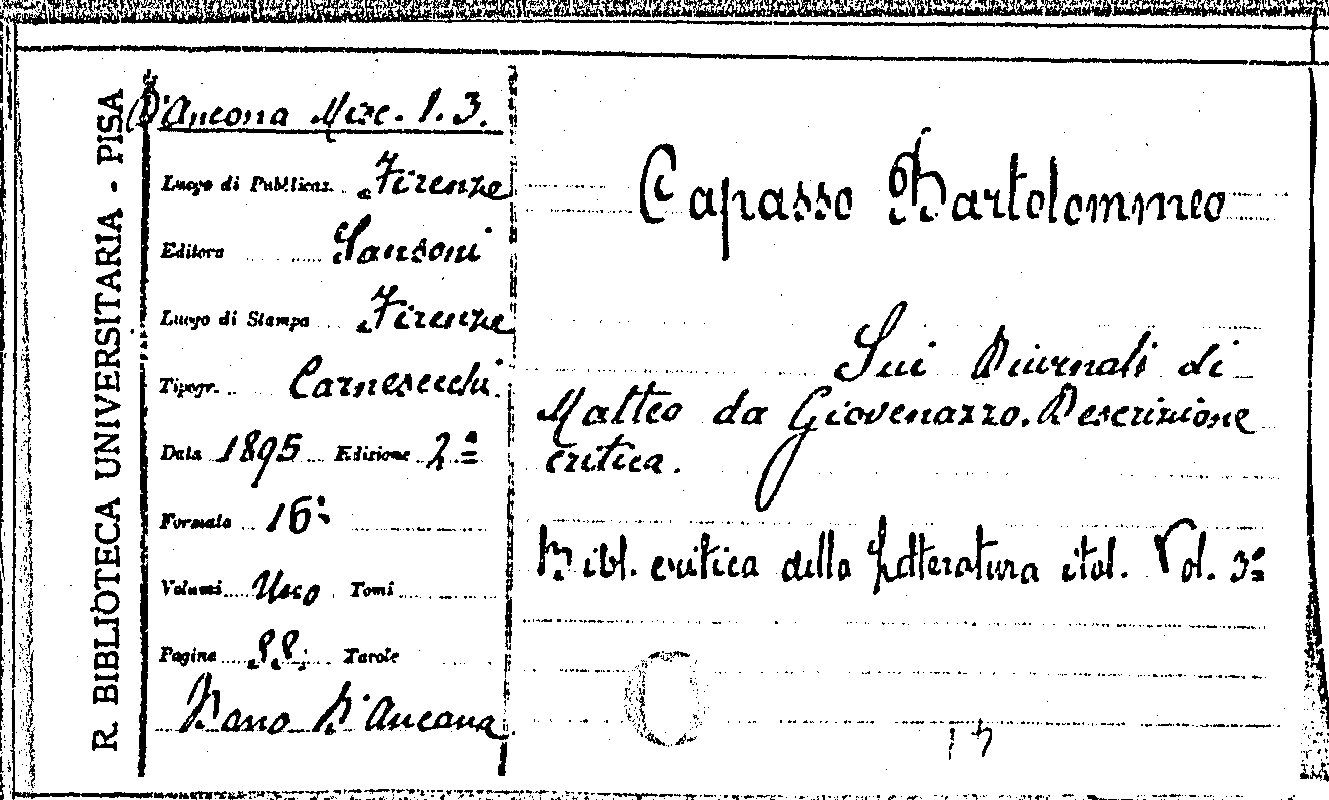 R. BIBLIOTECA UNIVERSITARIA - PISA
D'Ancona Misc. 1. 3.
Luogo di Pubblicaz. Firenze
Editore Sansoni
Luogo di Stampa Firenze
Tipogr. Carnesecchi.
Data 1895 Edizione 2ª
Formato 16º
Volumi Uno Tomi
Pagine Tavole
Dono D'Ancona
Capasso Bartolommeo
Sui Diurnali di
Matteo da Giovenazzo. Descrizione
critica.
Bibl. critica della Letteratura ital. Vol. 3º